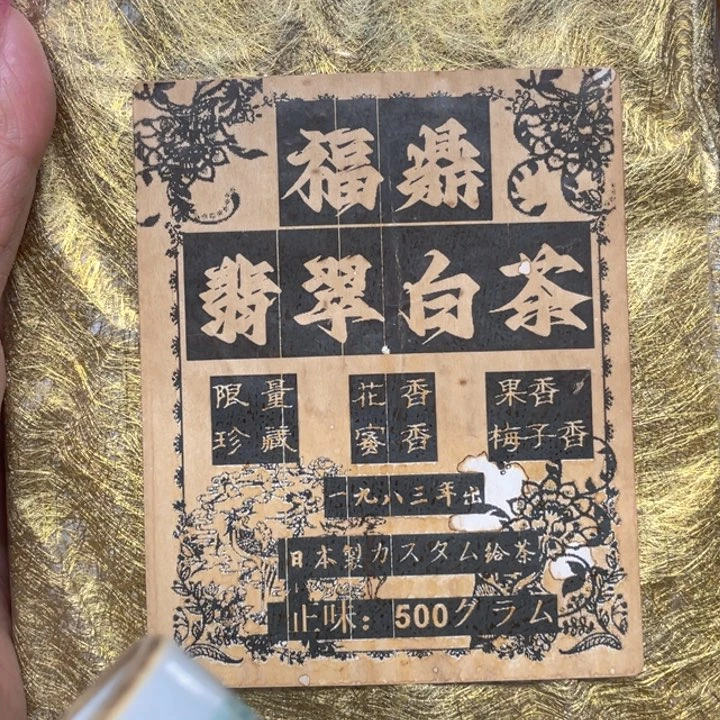 福鼎
翡翠白茶
限量
珍藏
花香
蜜香
果香
梅子香
一九八三年出
日本製カスタム給茶
止味：500グラム